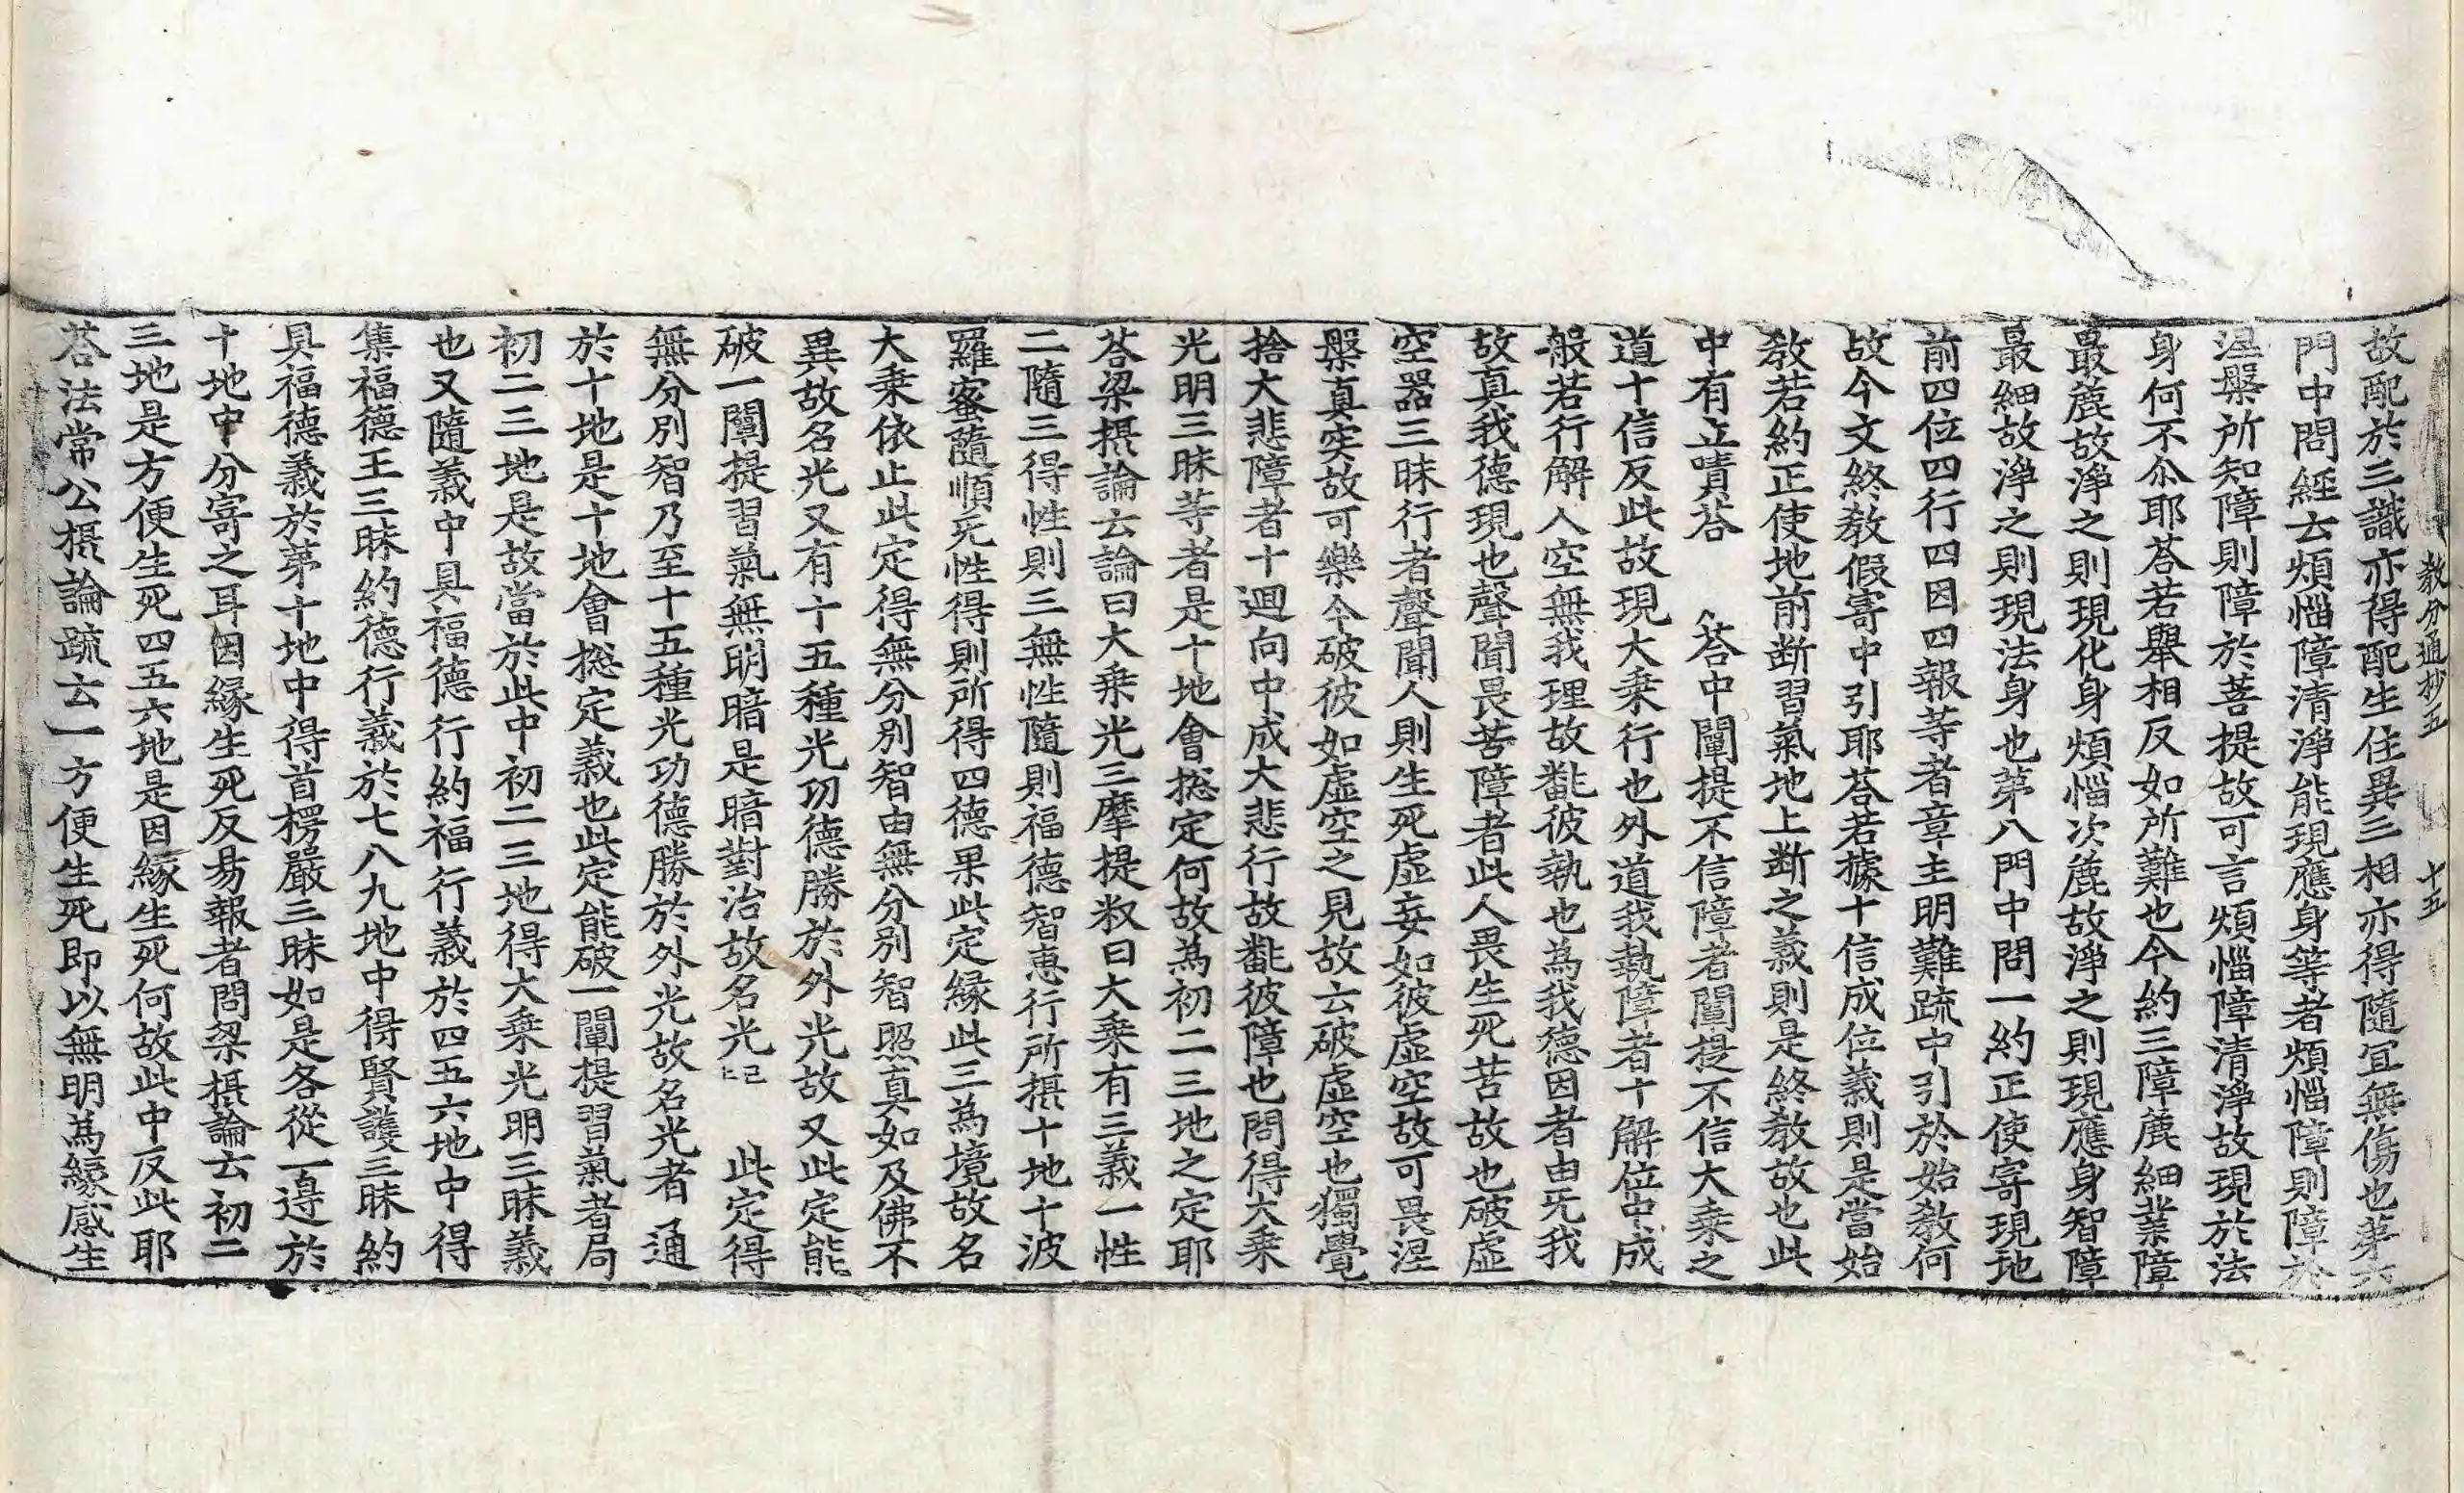 教分通抄五　十五
故配於三識亦得配生住異三相亦得隨冝無傷也苐六
門中問經云煩惱障清淨能現應身等者煩惱障則障於
涅槃所知障則障於菩提故可言煩惱障清淨故現於法
身何不尒耶荅若舉相反如所難也今約三障麁細業障
最麁故淨之則現化身煩惱次麁故淨之則現應身智障
最細故淨之則現法身也苐八門中問一約正使寄現地
前四位四行四因四報䓁者章主明難䟽中引於始教何
故今文終教假寄中引耶荅若據十信成位義則是當始
教若約正使地前断習氣地上断之義則是終教故也此
中有立嘖荅　荅中闡提不信障者闡提不信大乗之
道十信反此故現大乗行也外道我執障者十解位中成
般若行解人空無我理故翻彼執也為我德因者由旡我
故真我德現也聲聞畏苦障者此人畏生死苦故也破虛
空器三昧行者聲聞人則生死虛妄如彼虛空故可畏涅
槃真实故可樂今破彼如虛空之見故云破虛空也獨覺
捨大悲障者十迴向中成大悲行故翻彼障也問得大乗
光明三昧等者是十地會揔定何故為初二三地之定耶
荅梁摂論云論曰大乗光三摩提釈曰大乗有三義一性
二隨三得性則三無性隨則福德智恵行所摂十地十波
羅蜜隨順旡性得則所得四德果此定緣此三為境故名
大乗依止此定得無分別智由無分別智照真如及佛不
異故名光又有十五種光功德勝於外光故又此定能
破一闡提習氣無明暗是暗對治故名光上已　此定得
無分別智乃至十五種光功德勝於外光故名光者通
於十地是十地會揔定義也此定能破一闡提習氣者局
初二三地是故當於此中初二三地得大乗光明三昧義
也又隨義中具福德行約福行義於四五六地中得
集福德王三昧約德行義於七八九地中得賢護三昧約
具福德義於苐十地中得首楞嚴三昧如是各從一邊於
十地中分寄之耳因緣生死反易報者問梁摂論云初二
三地是方便生死四五六地是因緣生死何故此中反此耶
荅法常公摂論疏云一方便生死即以無明為緣感生